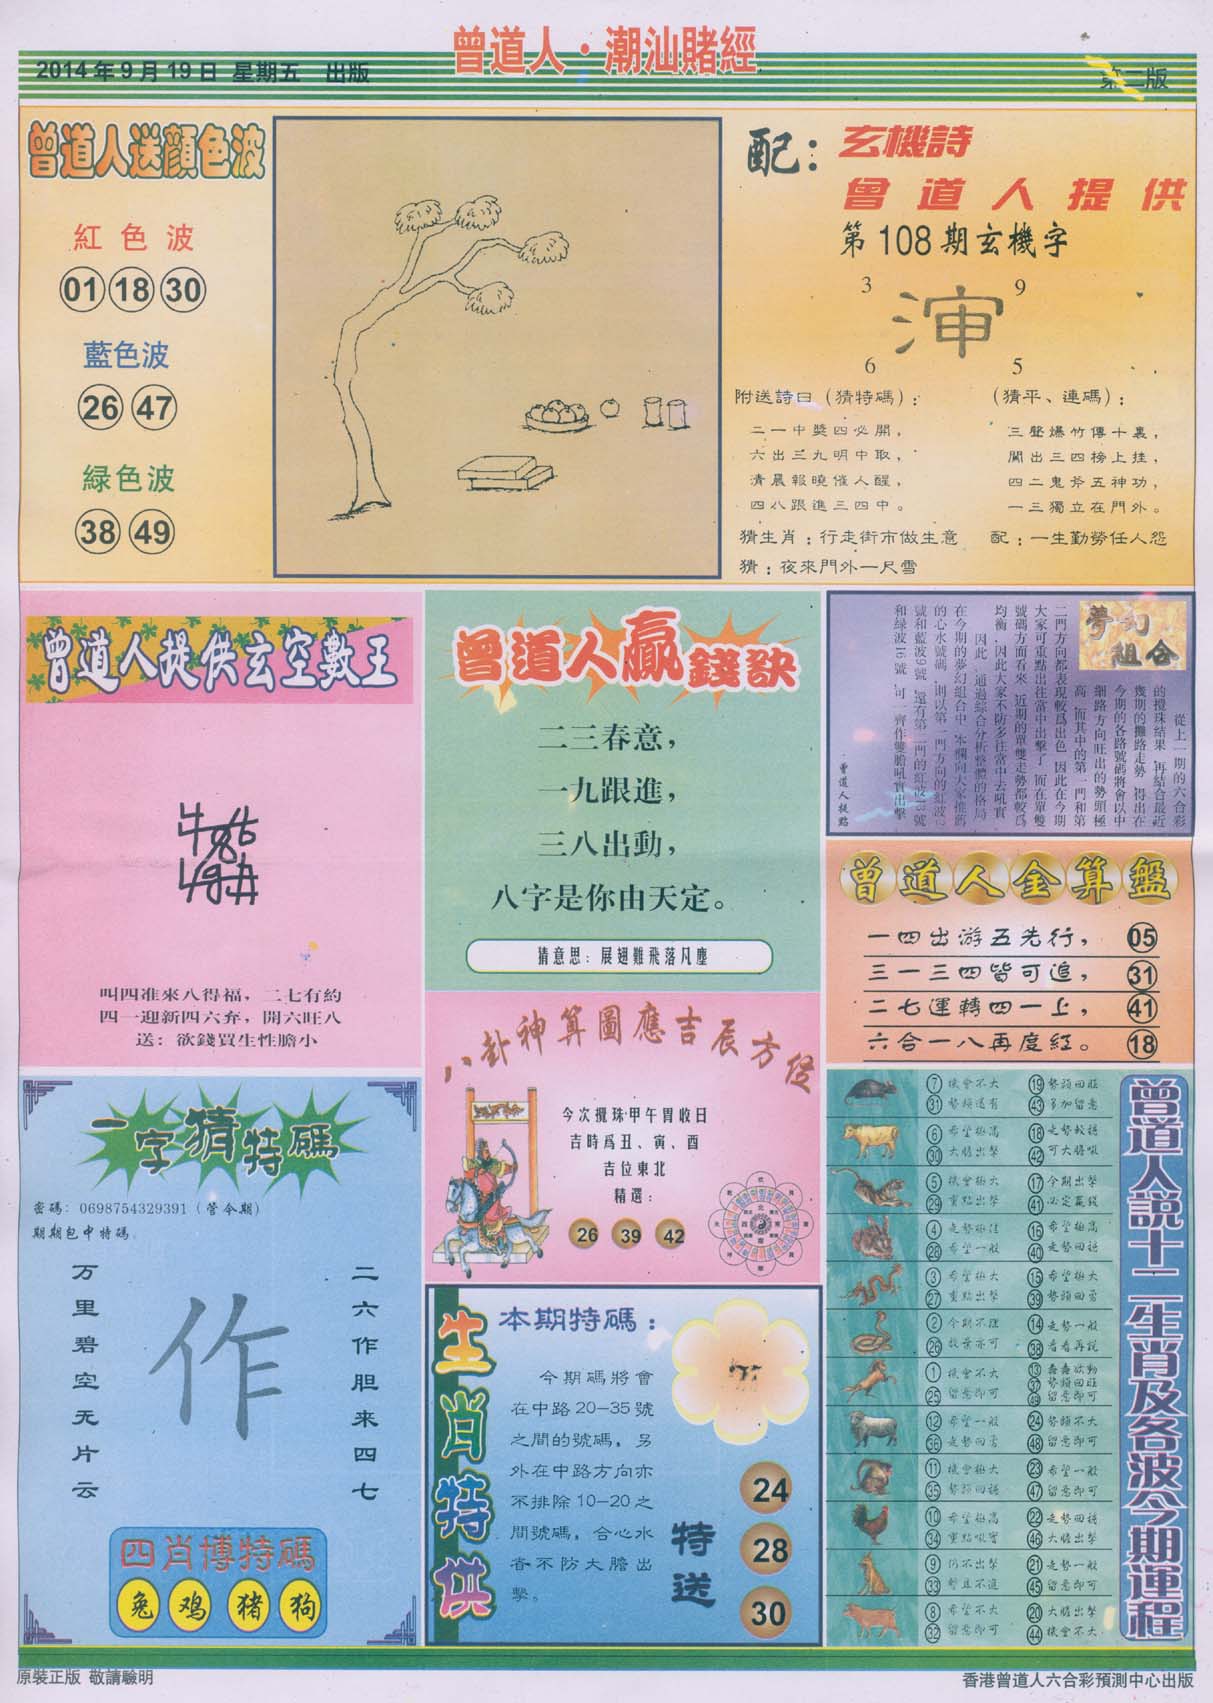 曾道人·潮汕賭經
2014年9月19日 星期五 出版
第二版
曾道人送顔色波
紅色波
01 18 30
藍色波
26 47
緑色波
38 49
配：玄機詩
曾道人提供
第108期玄機字
3 9
6 5
附送詩曰（猜特碼）：
二一中獎四必開，
六出三九明中取，
清晨報曉催人醒，
四八跟進三四中。
（猜平、連碼）：
三聲爆竹傳十裏，
開出三四榜上挂，
四二鬼斧五神功，
一三獨立在門外。
猜生肖：行走街市做生意
配：一生勤勞任人怨
猜：夜來門外一尺雪
曾道人提供玄空數王
叫四准來八得福，二七有約
四一迎新四六弃，開六旺八
送：欲錢買生性膽小
曾道人贏錢訣
二三春意，
一九跟進，
三八出動，
八字是你由天定。
猜意思：展翅難飛落凡塵
夢幻組合
從上一期的六合彩
的攪珠結果，再結合最近
幾期的攤路走勢，得出在
今期的各路號碼將會以中
網路方向旺出的勢頭極
高，而其中的第一門和第
二門方向都表現較爲出色，因此在今期
大家可重點出往當中出擊了，而在單雙
號碼方面看來，近期的單雙走勢都較爲
均衡，因此大家不防多往當中去吼實。
因此，通過綜合分析整體的格局，
在今期的夢幻組合中，本欄向大家推薦
和绿波16號，可一齊作雙膽吼實出擊
曾道人提點
曾道人金算盤
一四出游五先行， 05
三一三四皆可追， 31
二七運轉四一上， 41
六合一八再度紅。 18
八卦神算圖應吉辰方位
今次攪珠·甲午胃收日
吉時爲丑、寅、酉
吉位東北
精選：
26 39 42
一字猜特碼
密碼：0698754329391（管令期）
期期包中特碼
万里碧空无片云
作
二六作胆来四七
四肖博特碼
兔 鸡 猪 狗
生肖特供
本期特碼：
今期碼將會
在中路20-35號
之間的號碼，另
外在中路方向亦
不排除10-20之
間號碼，合心水
者不防大膽出
擊。
特送
24
28
30
曾道人説十二生肖及各波今期運程
7 機會不大 19 勢頭回旺
31 勢頭還有 43 多加留意
6 希望極高 18 走勢較穩
30 大膽出擊 42 可大膽吼
5 機會極大 17 今期出擊
29 重點出擊 41 必定贏錢
4 走勢極佳 16 希望極高
28 希望一般 40 走勢回穩
3 希望極大 15 希望極大
27 重點出擊 39 勢頭回勇
2 今期不旺 14 走勢一般
26 放棄亦可 38 看看再說
1 機會不大 13 蠢蠢欲動
37 勢頭回旺
25 留意即可 49 留意即可
12 希望一般 24 勢頭不大
36 走勢回勇 48 留意即可
11 機會極大 23 希望一般
35 勢頭回穩 47 留意即可
10 希望極高 22 走勢回穩
34 重點吼實 46 大膽出擊
9 仍不出擊 21 走勢一般
33 暫且不追 45 留意即可
8 希望不大 20 大膽出擊
32 留意即可 44 機會不大
原裝正版 敬請驗明
香港曾道人六合彩預測中心出版